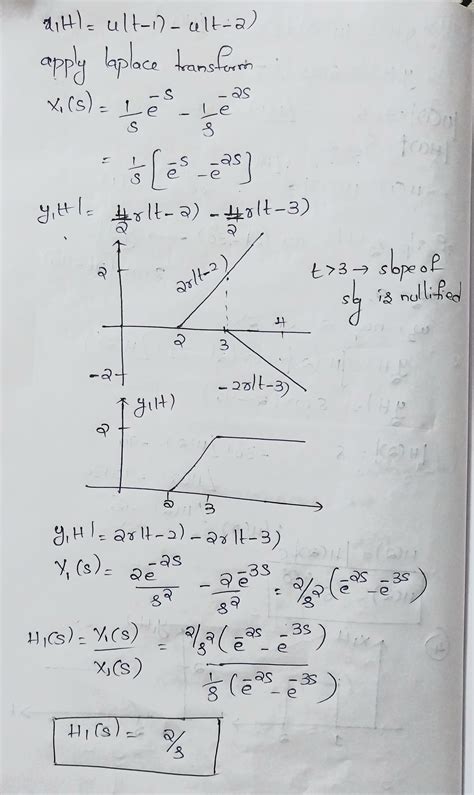 x₁(t) = u(t-1) - u(t-2)
apply laplace transform
X₁(s) = 1/s e^-s - 1/s e^-2s
= 1/s [e^-s - e^-2s]
y₁(t) = 4/2 r(t-2) - 4/2 r(t-3)
2
2r(t-2)
t>3 → slope of
sig is nullified
2 3 4
-2
-2r(t-3)
y₁(t)
2
2 3
y₁(t) = 2r(t-2) - 2r(t-3)
Y₁(s) = 2e^-2s/s² - 2e^-3s/s² = 2/s² (e^-2s - e^-3s)
H₁(s) = Y₁(s)/X₁(s) = 2/s² (e^-2s - e^-3s) / 1/s (e^-2s - e^-3s)
H₁(s) = 2/s